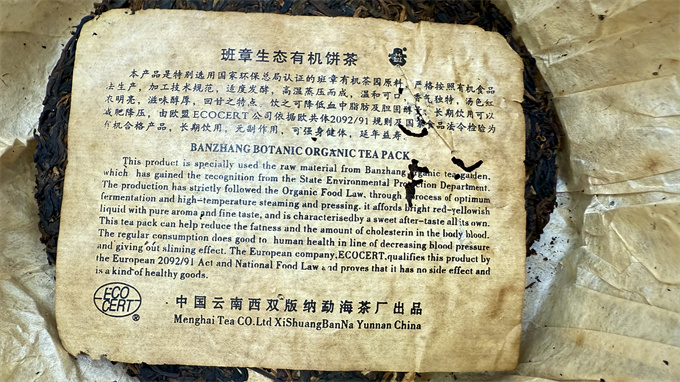 班章生态有机饼茶
本产品是特别选用国家环保总局认证的班章有机茶园原料，严格按照有机食品
法生产，加工技术规范，适度发酵，高温蒸压而成，温和可口，香气独特，汤色红
浓明亮，滋味醇厚，回甘之特点，饮之可降低血中脂肪及胆固醇，长期饮用可以
减肥降压，由欧盟ECOCERT公司依据欧共体2092/91规则及国家食品法令检验为
有机合格产品，长期饮用，无副作用，可强身健体，延年益寿
BANZHANG BOTANIC ORGANIC TEA PACK
This product is specially used the raw material from Banzhang organic tea garden,
which has gained the recognition from the State Environmental Protection Department.
The production has strictly followed the Organic Food Law, through process of optimum
fermentation and high-temperature steaming and pressing. it affords bright red-yellowish
liquid with pure aroma and fine taste, and is characterised by a sweet after-taste all its own.
This tea pack can help reduce the fatness and the amount of cholesterin in the body blood.
The regular consumption does good to human health in line of decreasing blood pressure
and giving out sliming effect. The European company,ECOCERT,qualifies this product by
the European 2092/91 Act and National Food Law and proves that it has no side effect and
is a kind of healthy goods.
ECO
CERT
®
中国云南西双版纳勐海茶厂出品
Menghai Tea CO.Ltd XiShuangBanNa Yunnan China